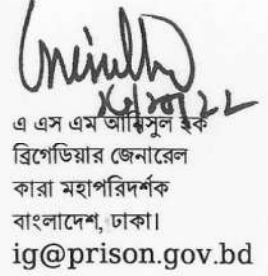 এ এস এম আনিসুল হক
ব্রিগেডিয়ার জেনারেল
কারা মহাপরিদর্শক
বাংলাদেশ, ঢাকা।
ig@prison.gov.bd